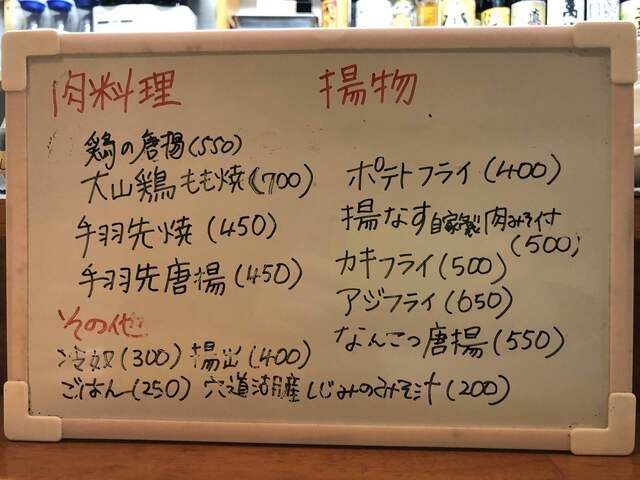 肉料理
鶏の唐揚(550)
大山鶏もも焼(700)
手羽先焼(450)
手羽先唐揚(450)
揚物
ポテトフライ(400)
揚なす自家製肉みそ付
(500)
カキフライ(500)
アジフライ(650)
なんこつ唐揚(550)
その他
冷奴(300) 揚出(400)
ごはん(250) 宍道湖産しじみのみそ汁(200)